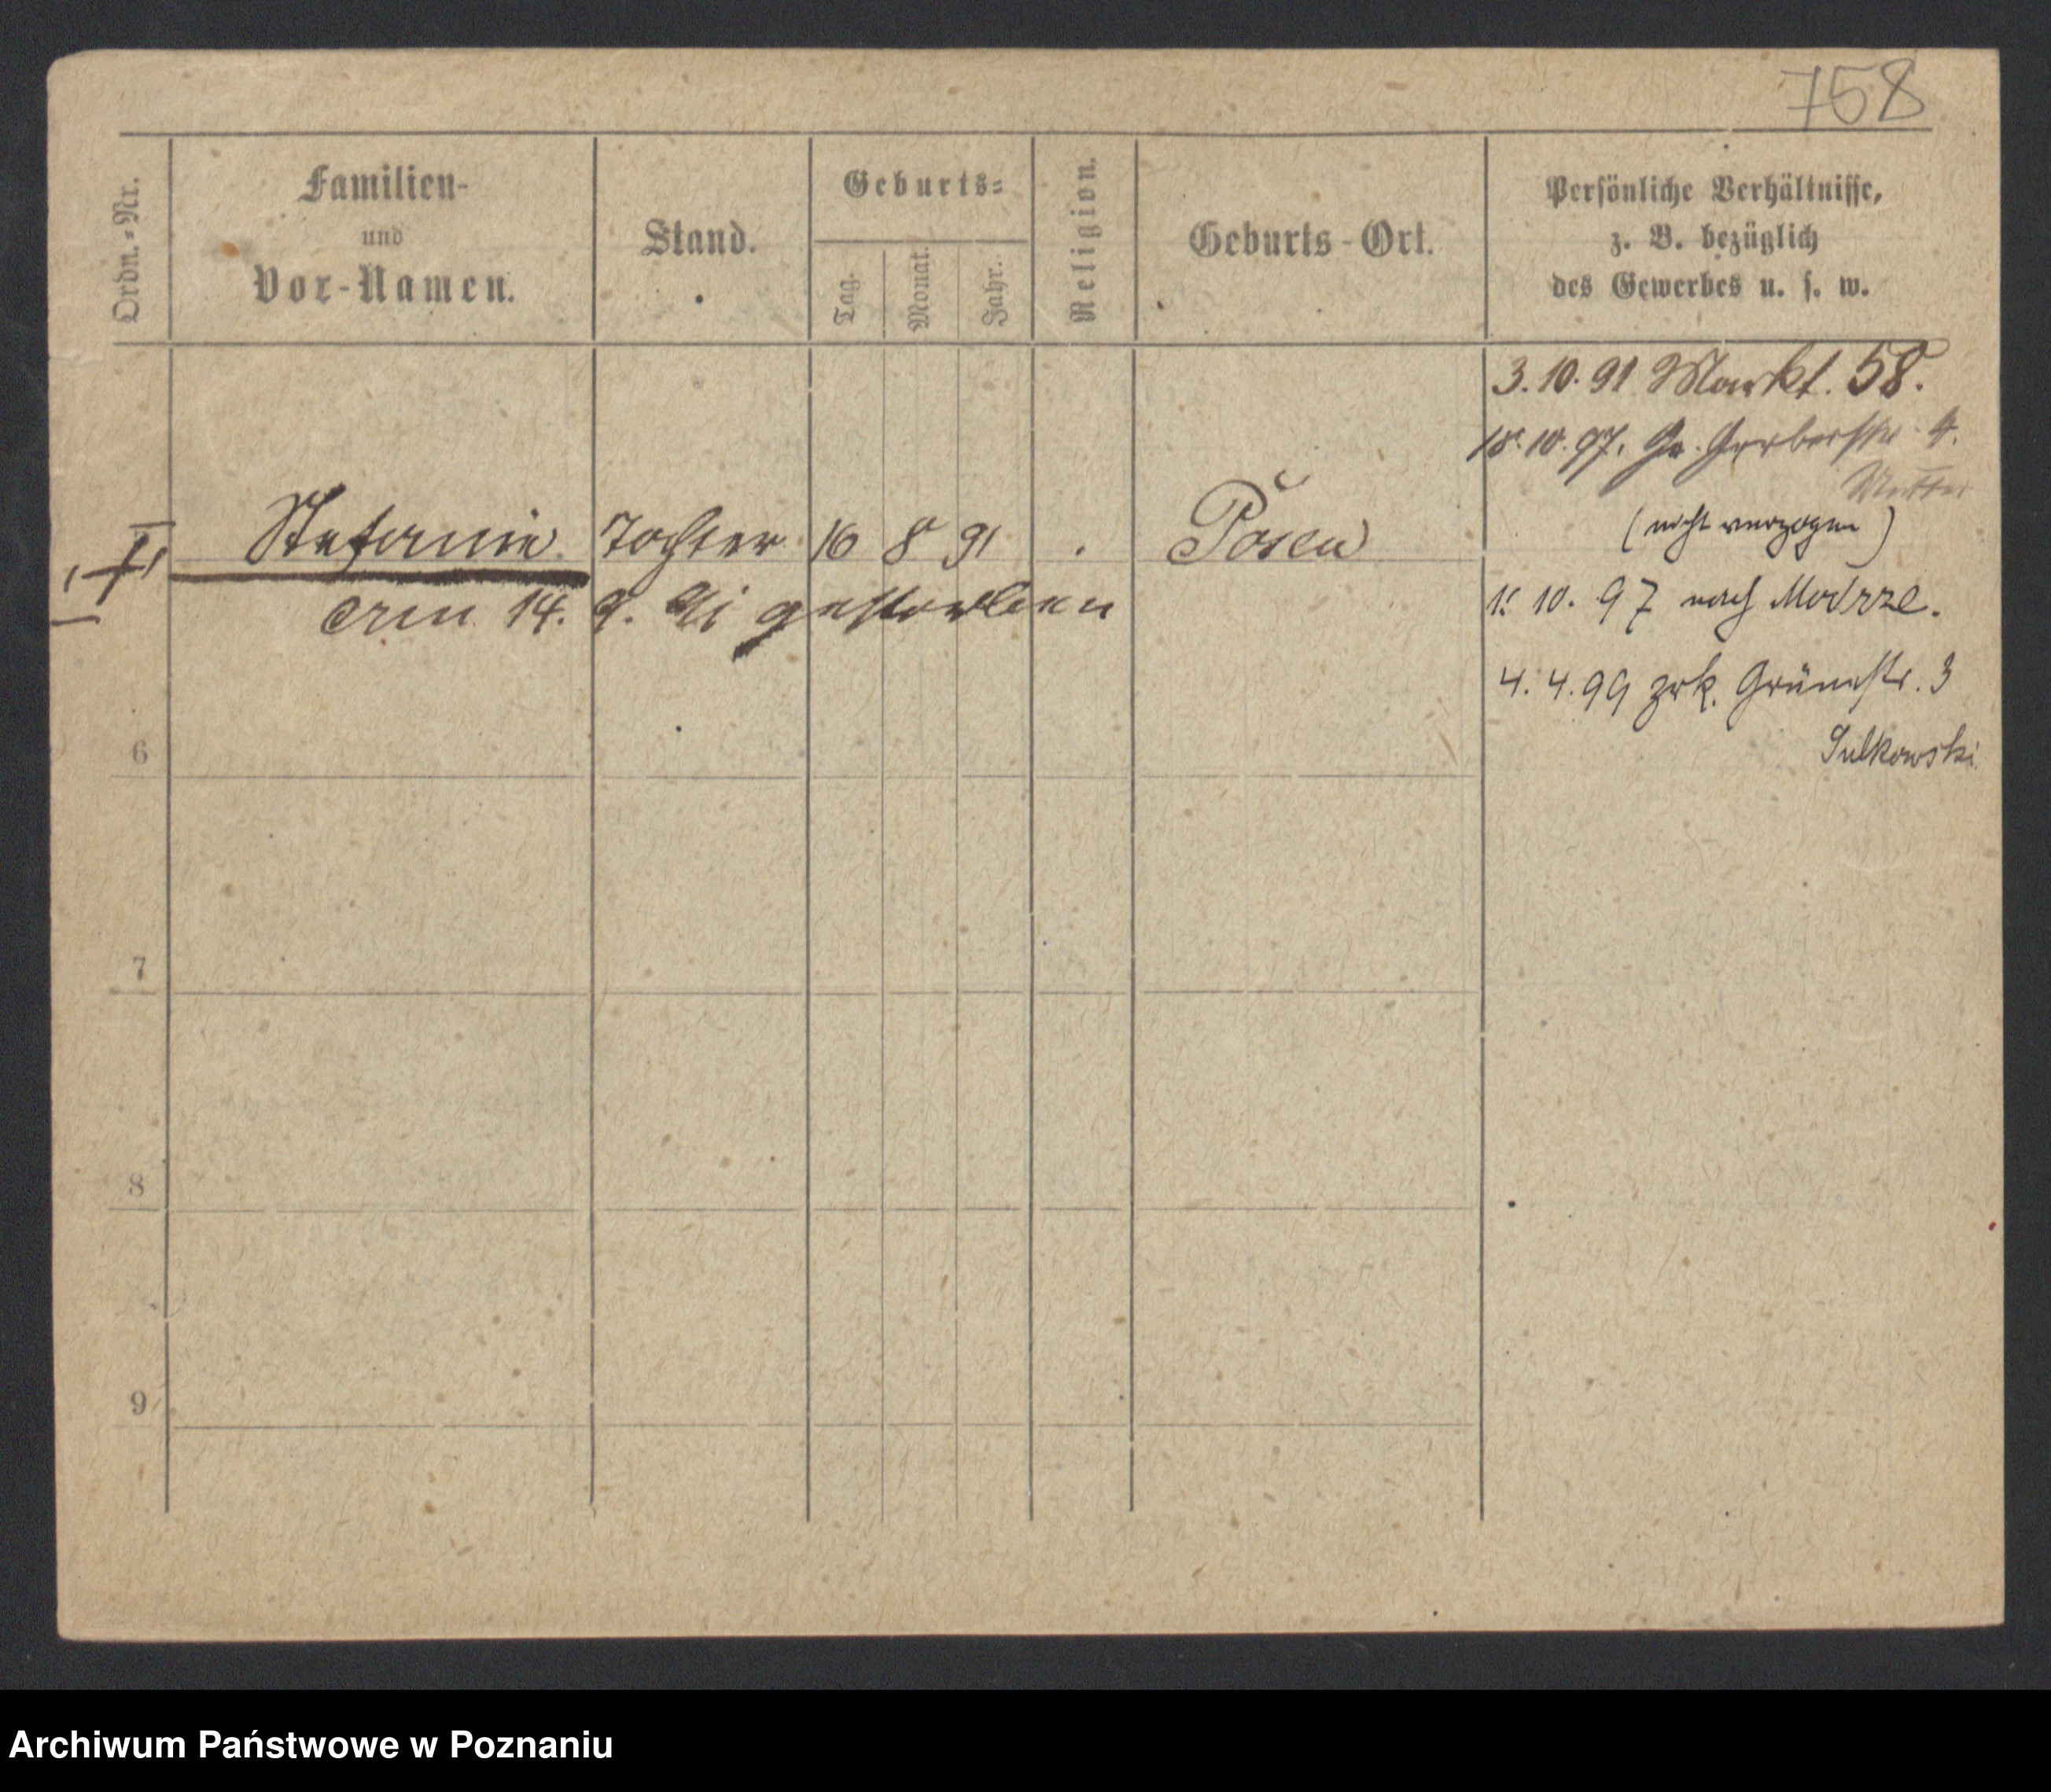 758
Ordn.-Nr.
Familien-
und
Vor-Namen.
Stand.
Geburts-
Tag.
Monat.
Jahr.
Religion.
Geburts-Ort.
Persönliche Verhältnisse,
z. B. bezüglich
des Gewerbes u. s. w.
3.10.91 Markt. 58.
18.10.97. Gr. Gerberstr. 4.
Mutter
(nicht verzogen)
Stefanie Tochter 16 8 91 . Posen
am 14. 9. 91 gestorben
1. 10. 97 nach
4. 4. 99 zrk. Grünestr. 3
Sulkowski
6
7
8
9
Archiwum Państwowe w Poznaniu